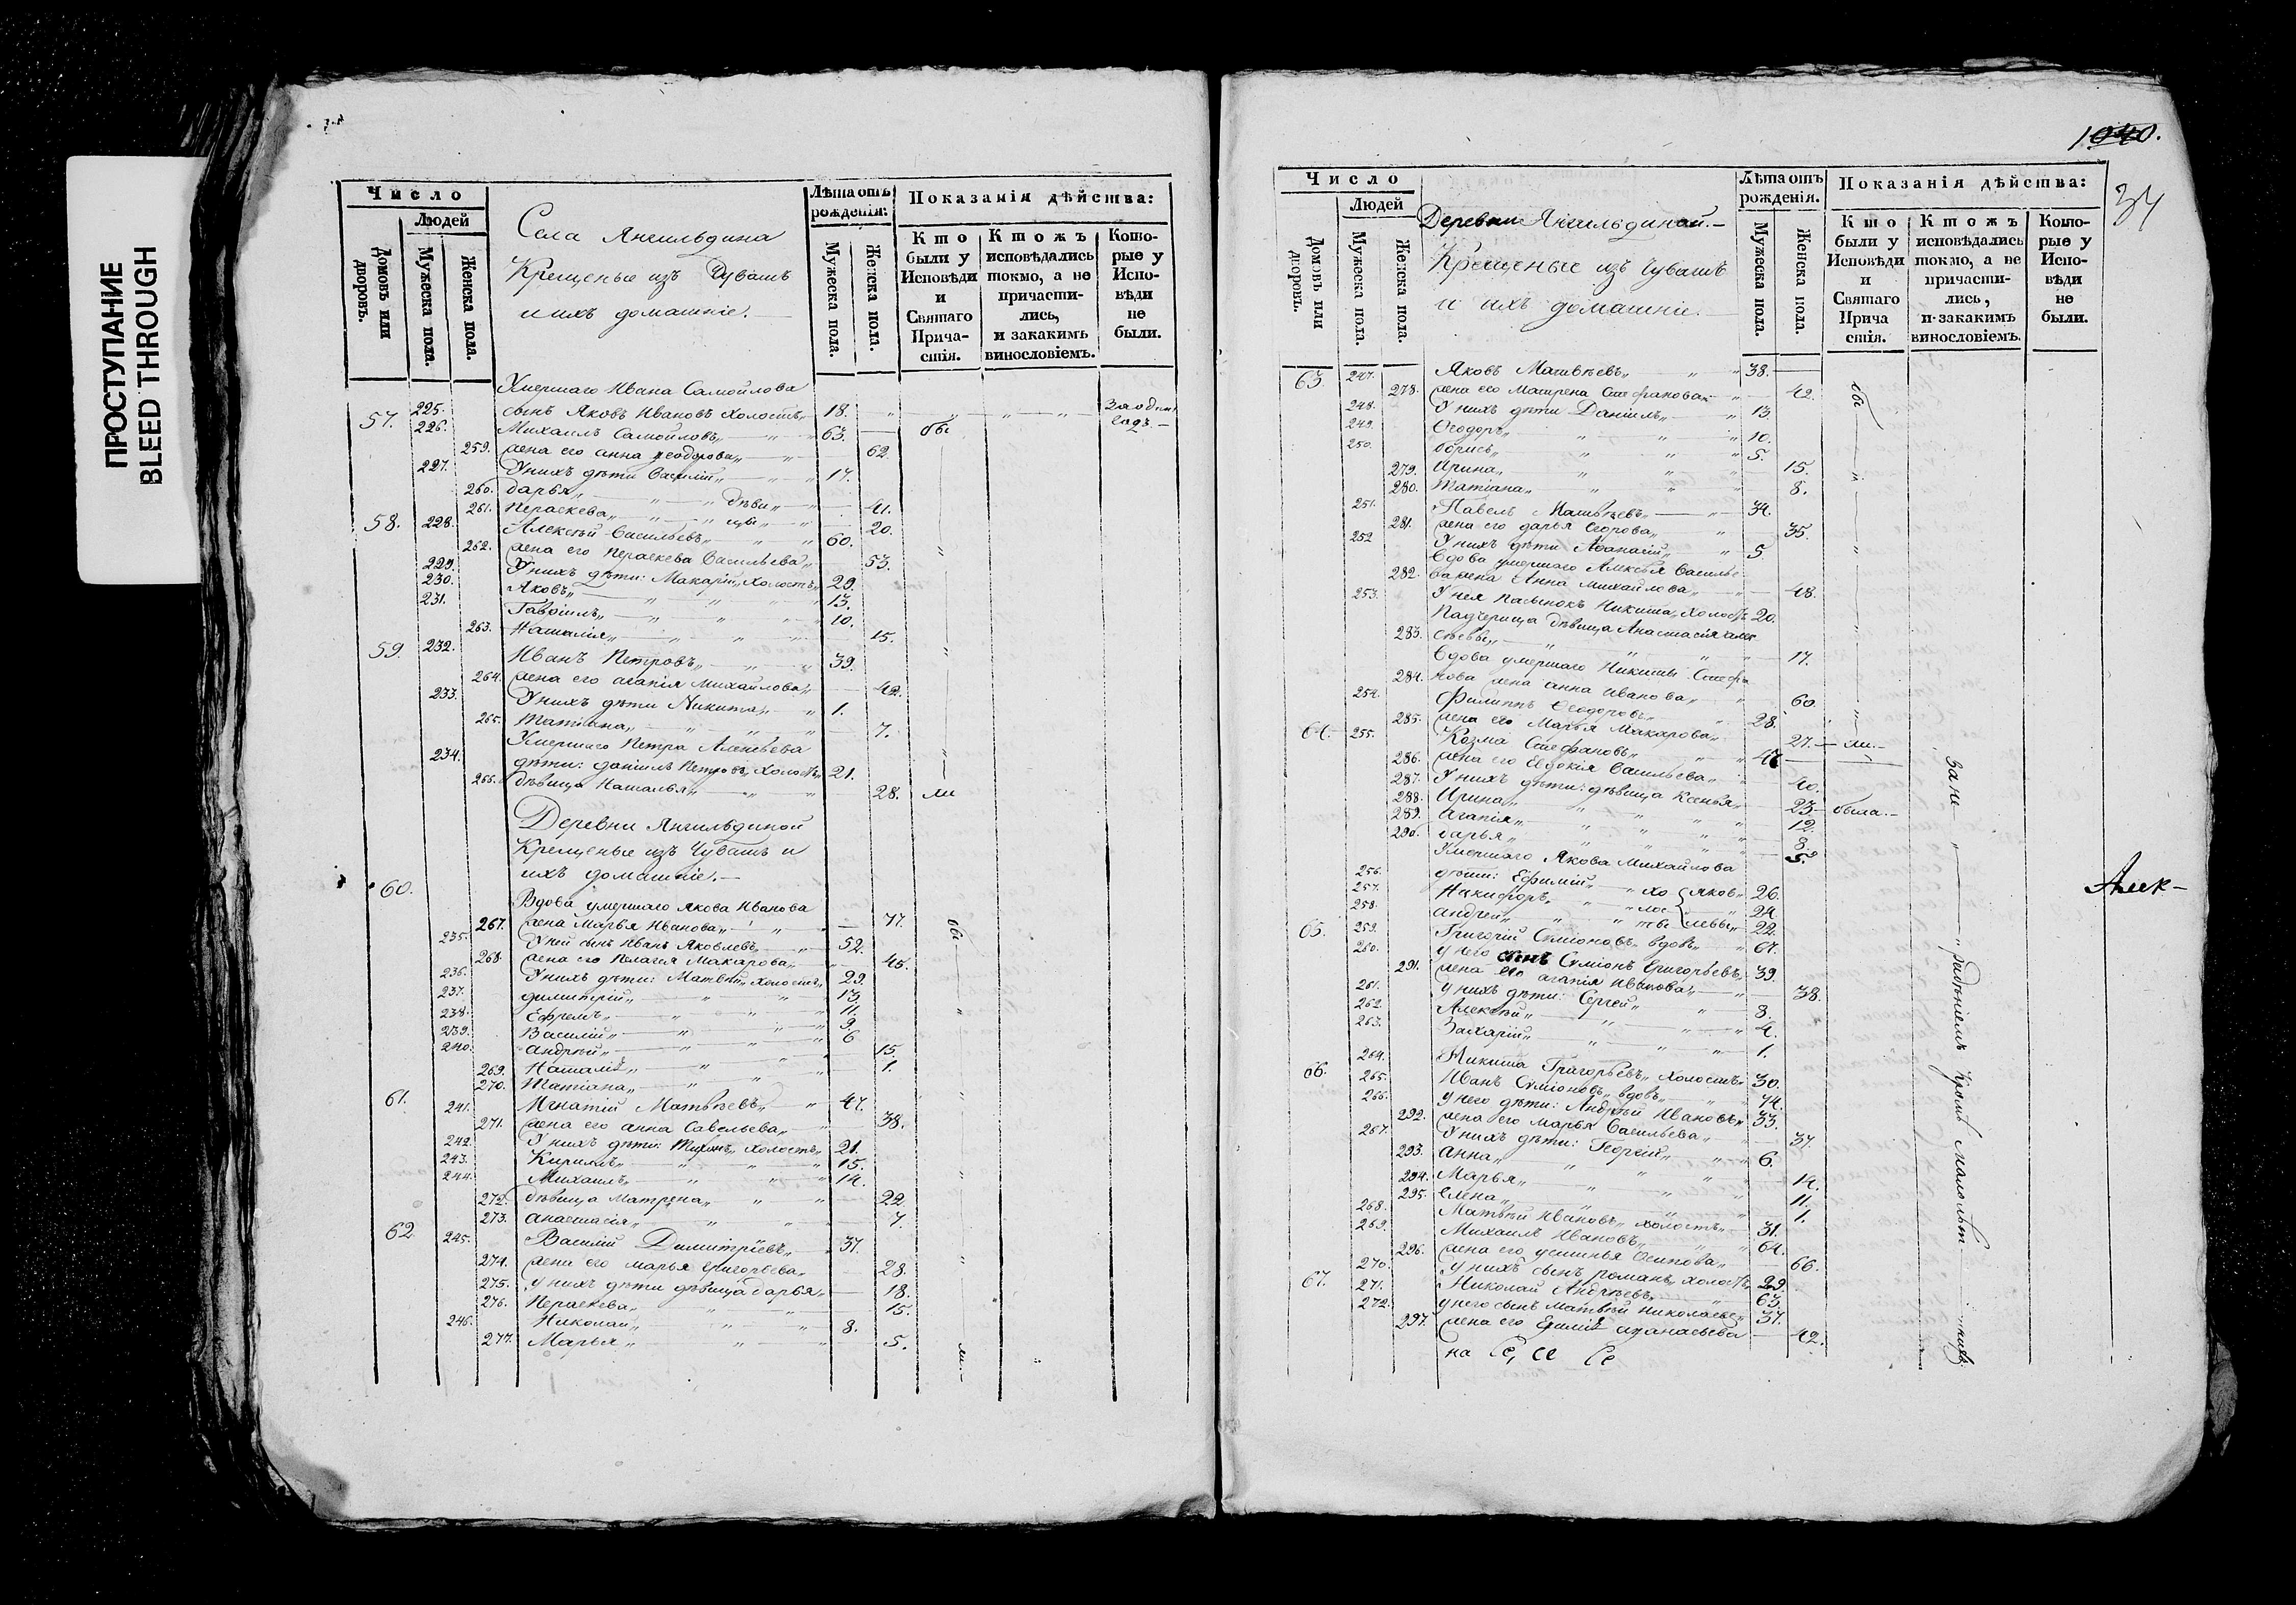 ПРОСТУПАНИЕ
BLEED THROUGH
Число
Людей
Домовъ или дворовъ.
Мужеска пола.
Женска пола.
Села Янгильдина
Крещеные изъ Чувашъ
и ихъ домашніе.
Лѣта отъ рожденія:
Мужеска пола.
Женска пола.
Показанія дѣйства:
Кто были у Исповѣди и Святаго Причастія.
Ктожъ исповѣдались токмо, а не причастились, и закакимъ винословіемъ.
Которые у Исповѣди не были.
Умершаго Ивана Самойлова
57. 225. сынъ Яковъ Ивановъ холостъ 18.
226. Михаилъ Самойловъ 63. бы
259. жена его анна Ѳеодорова 62.
227. У нихъ дѣти Василій 17.
260. дарья дѣви 41.
261. Параскева цы 20.
58. 228. Алексѣй Васильевъ 60.
262. жена его Параскева Васильева 53.
229. У нихъ дѣти: Макарій холостъ 29.
230. Яковъ 13.
231. Гавріилъ 10.
263. Наталія 15.
59. 232. Иванъ Петровъ 39.
264. жена его агапія Михайлова 42.
233. У нихъ дѣти Никита 1.
265. Татіана 7.
Умершаго Петра
234. дѣти: даніилъ Петровъ холостъ 21.
266. дѣвица Наталья 28. ли
Деревни Янгильдиной
Крещеные изъ Чувашъ и
ихъ домашніе.
60. Вдова умершаго Якова Иванова
267. жена Марья Иванова 77. бы
235. У ней сынъ Иванъ Яковлевъ 52.
268. жена его Пелагея Макарова 45.
236. У нихъ дѣти: Матвѣй холостъ 29.
237. димитрій 13.
238. Ефремъ 11.
239. Василій 9.
240. андрей 6
269. Наталія 15.
270. Татіана 1.
61. 241. Игнатій Матвѣевъ 47.
271. жена его анна Савельева 38.
242. У нихъ дѣти: Тихонъ холостъ 21.
243. Кириллъ 15.
244. Михаилъ 14.
272. дѣвица Матрена 22.
273. анастасія 7.
62. 245. Василій Димитріевъ 37.
274. жена его марья григорьева 28.
275. у нихъ дѣти дѣвица дарья 18.
276. Параскева 15.
246. Николай 8.
277. Марья 5. ли.
1040.
34
Число
Людей
Домовъ или дворовъ.
Мужеска пола.
Женска пола.
Деревни Янгильдиной.
Крещеные изъ Чувашъ
и ихъ домашніе.
Лѣта отъ рожденія.
Мужеска пола.
Женска пола.
Показанія дѣйства:
Кто были у Исповѣди и Святаго Причастія.
Ктожъ исповѣдались токмо, а не причастились, и закакимъ винословіемъ.
Которые у Исповѣди не были.
63. 247. Яковъ Матвѣевъ 38.
278. жена его Матрена Стефанова 42. бы
248. У нихъ дѣти Даніилъ 13
249. Ѳеодоръ 10.
250. борисъ 5.
279. Ирина 15.
280. Татіана 8.
251. Павелъ Матвѣевъ 34.
281. жена его дарья Егорова 35.
252 У нихъ дѣти Аѳанасій 5
Вдова умершаго Алексѣя Василье
282. ва жена Анна Михайлова 48.
253. У нея пасынокъ Никита холостъ 20.
Падчерица дѣвица Анастасія алек
283. сѣевы 17.
Вдова умершаго Никиты Стефа
284. нова жена анна иванова 60.
254. Филиппъ Ѳеодоровъ 28.
285. жена его Марья Макарова 27. ли.
64. 255. Козма Стефановъ
286. жена его Евдокія Васильева 40.
287. У нихъ дѣти: дѣвица Ксенья 23. была.
288. Ирина 12.
289. Агапія 8.
290. дарья 5.
Умершаго Якова Михайлова
256. дѣти: Ефимій хо яков 26.
257. Никифоръ лос 24.
258. андрей тые левы 22.
65. 259. Григорій Симіоновъ вдовъ 67.
260. у него сынъ Симіонъ Григорьевъ 39.
291. жена его агапія Иванова 38.
261. У нихъ дѣти: Сергей 8.
262. Алексѣй 4.
263. Захарій 1.
264. Никита Григорьевъ холостъ 30.
66. 265. Иванъ Симіоновъ вдовъ 74.
266. у него дѣти: Андрей Ивановъ 33.
292. жена его Марья Васильева 37.
267. У нихъ дѣти: Георгій 6.
293. анна 14.
294. Марья 11.
295. Елена 1.
268. Матвѣй Ивановъ холостъ 31.
269. Михаилъ Ивановъ 64.
296. жена его устинья Осипова 66.
270. У нихъ сынъ романъ холостъ 29.
67. 271. Николай Андреевъ 63.
272. у него сынъ Матвѣй Николаевъ 37.
297. жена его аѳанасьева 42.
за не радѣніемъ кромѣ малолѣт нихъ
Алек-